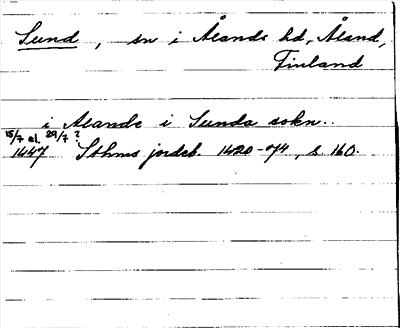 Sund, sn i Ålands hd, Åland,
Finland
i Alande i Sunda sokn..
15/7 el. 29/7 ?
1447 Sthms jordeb. 1420-74, s 160.